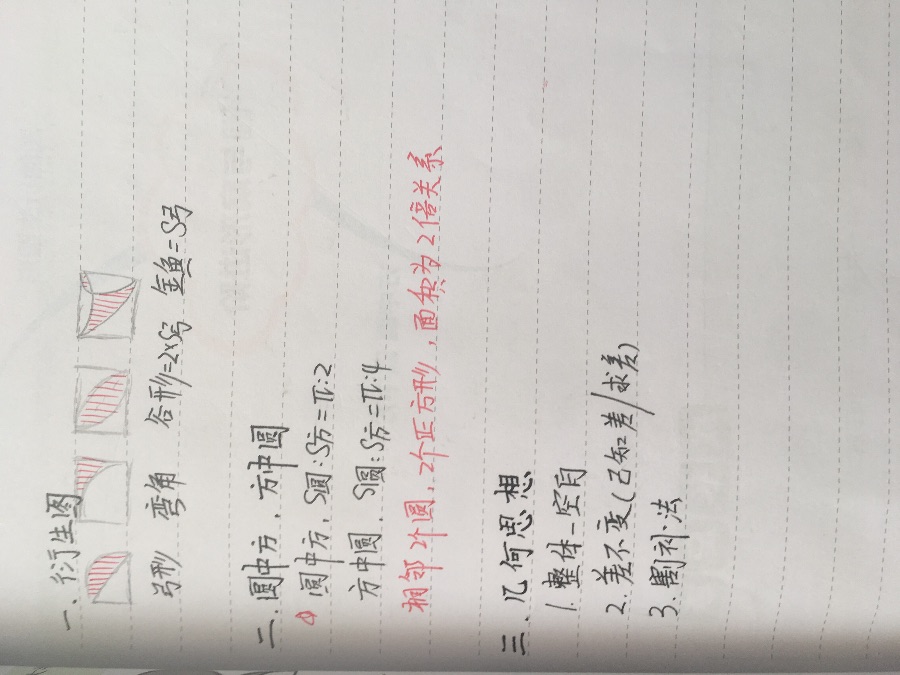 一. 衍生图
弓形 弯角 谷形=2×S弓 金鱼=S弓
二. 圆中方, 方中圆
圆中方, S圆:S方=π:2
方中圆, S圆:S方=π:4
相邻2个圆, 2个正方形, 面积为2倍关系
三. 几何思想
1. 整体-空白
2. 差不变(已知差/求差)
3. 割补法